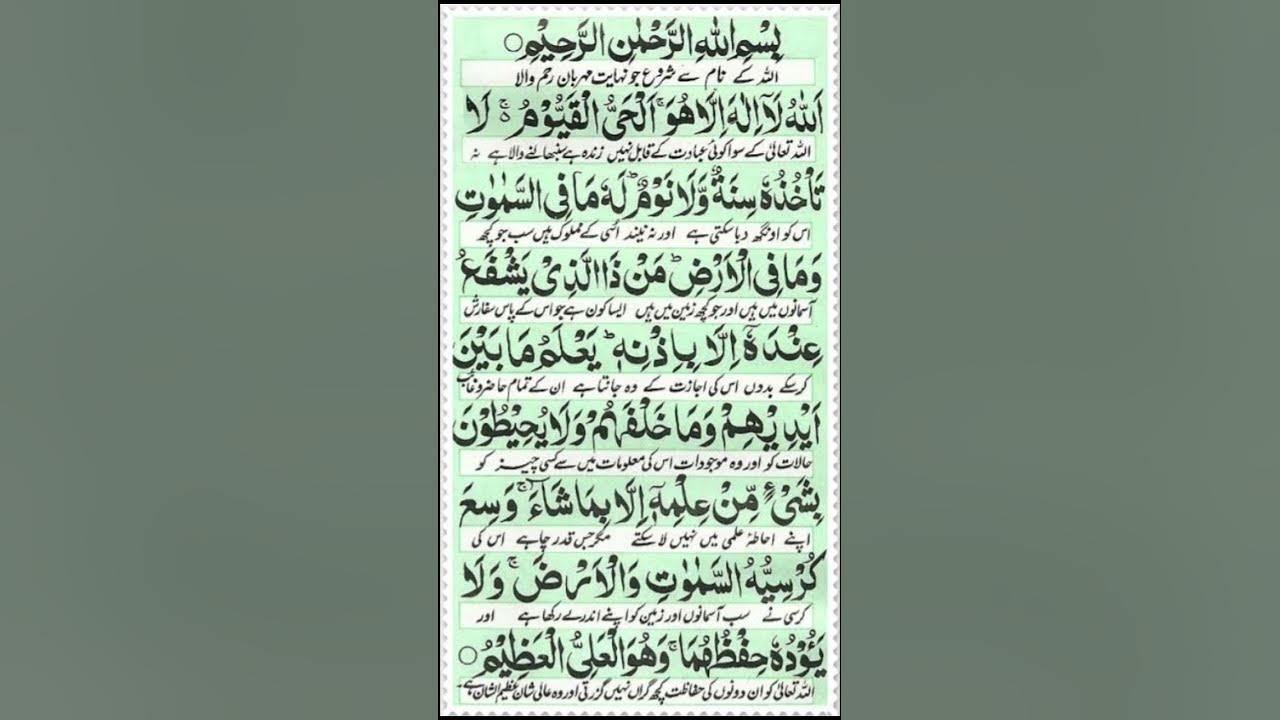 بِسْمِ اللهِ الرَّحْمٰنِ الرَّحِيْمِ○
اللہ کے نام سے شروع جو نہایت مہربان رحم والا
اَللهُ لَآ اِلٰهَ اِلَّا هُوَ ۚ اَلْحَيُّ الْقَيُّوْمُ ۚ لَا
اللہ تعالیٰ کے سوا کوئی عبادت کے قابل نہیں زندہ ہے سنبھالنے والا ہے نہ
تَاْخُذُهٗ سِنَةٌ وَّلَا نَوْمٌ ؕ لَهٗ مَا فِي السَّمٰوٰتِ
اس کو اونگھ دبا سکتی ہے اور نہ نیند اسی کے مملوک ہیں سب جو کچھ
وَمَا فِي الْاَرْضِ ؕ مَنْ ذَا الَّذِيْ يَشْفَعُ
آسمانوں میں ہیں اور جو کچھ زمین میں ہیں ایسا کون ہے جو اس کے پاس سفارش
عِنْدَهٗٓ اِلَّا بِاِذْنِهٖ ؕ يَعْلَمُ مَا بَيْنَ
کر سکے بدوں اس کی اجازت کے وہ جانتا ہے ان کے تمام حاضر و غائب
اَيْدِيْهِمْ وَمَا خَلْفَهُمْ وَلَا يُحِيْطُوْنَ
حالات کو اور وہ موجودات اس کی معلومات میں سے کسی چیز کو
بِشَيْءٍ مِّنْ عِلْمِهٖٓ اِلَّا بِمَا شَآءَ ۚ وَسِعَ
اپنے احاطۂ علمی میں نہیں لا سکتے مگر جس قدر چاہے اس کی
كُرْسِيُّهُ السَّمٰوٰتِ وَالْاَرْضَ ۚ وَلَا
کرسی نے سب آسمانوں اور زمین کو اپنے اندر لے رکھا ہے اور
يَـُٔوْدُهٗ حِفْظُهُمَا ۚ وَهُوَ الْعَلِيُّ الْعَظِيْمُ○
اللہ تعالیٰ کو ان دونوں کی حفاظت کچھ گراں نہیں گزرتی اور وہ عالی شان عظیم الشان ہے۔